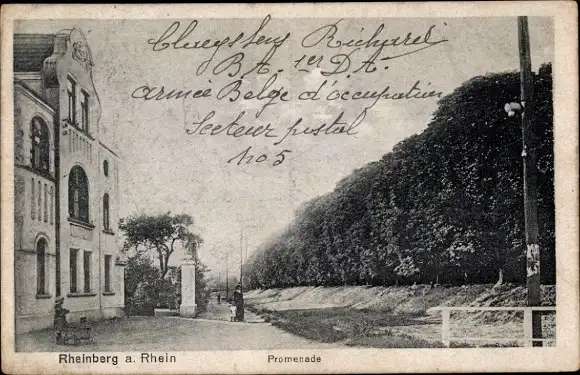 Cluegsleng Richard
Bt. 1er D.A.
Armée Belge d'occupation
Secteur postal
no 5
Rheinberg a. Rhein
Promenade